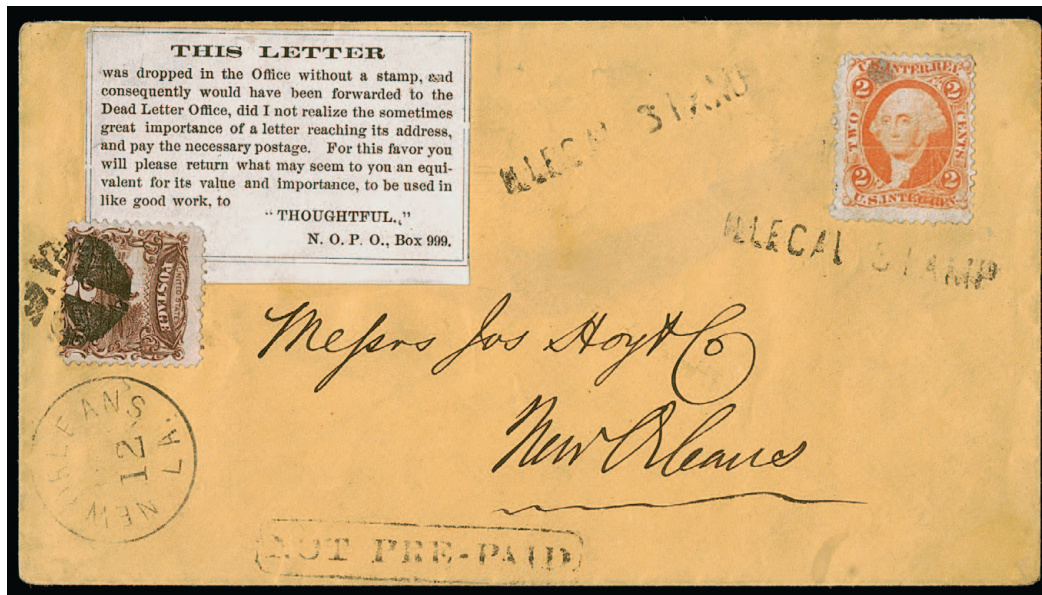 THIS LETTER
was dropped in the Office without a stamp, and
consequently would have been forwarded to the
Dead Letter Office, did I not realize the sometimes
great importance of a letter reaching its address,
and pay the necessary postage. For this favor you
will please return what may seem to you an equi-
valent for its value and importance, to be used in
like good work, to
"THOUGHTFUL.,"
N. O. P. O., Box 999.
ILLEGAL STAMP
U.S. INTER. REV.
2 2
TWO CENTS
2 2
U.S. INTER. REV.
ILLEGAL STAMP
UNITED STATES
POSTAGE
Messrs Jos Hoyt & Co
New Orleans
NEW ORLEANS LA.
12
NOT PRE-PAID